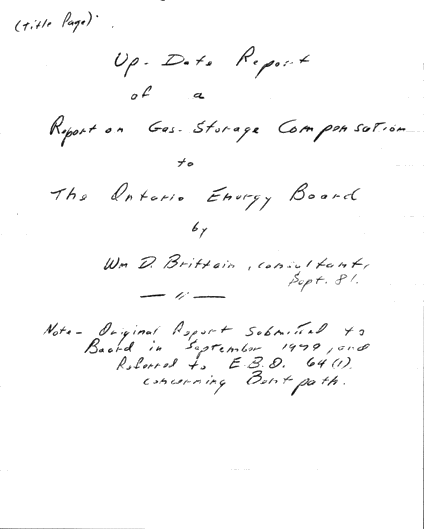 (Title Page)
Up-Date Report
of a
Report on Gas-Storage Compensation
to
The Ontario Energy Board
by
Wm D. Brittain, consultant,
Sept. 81.
— " —
Note- Original Report Submitted to
Board in September 1979, and
Referred to E.B.O. 64(1).
concerning Bentpath.